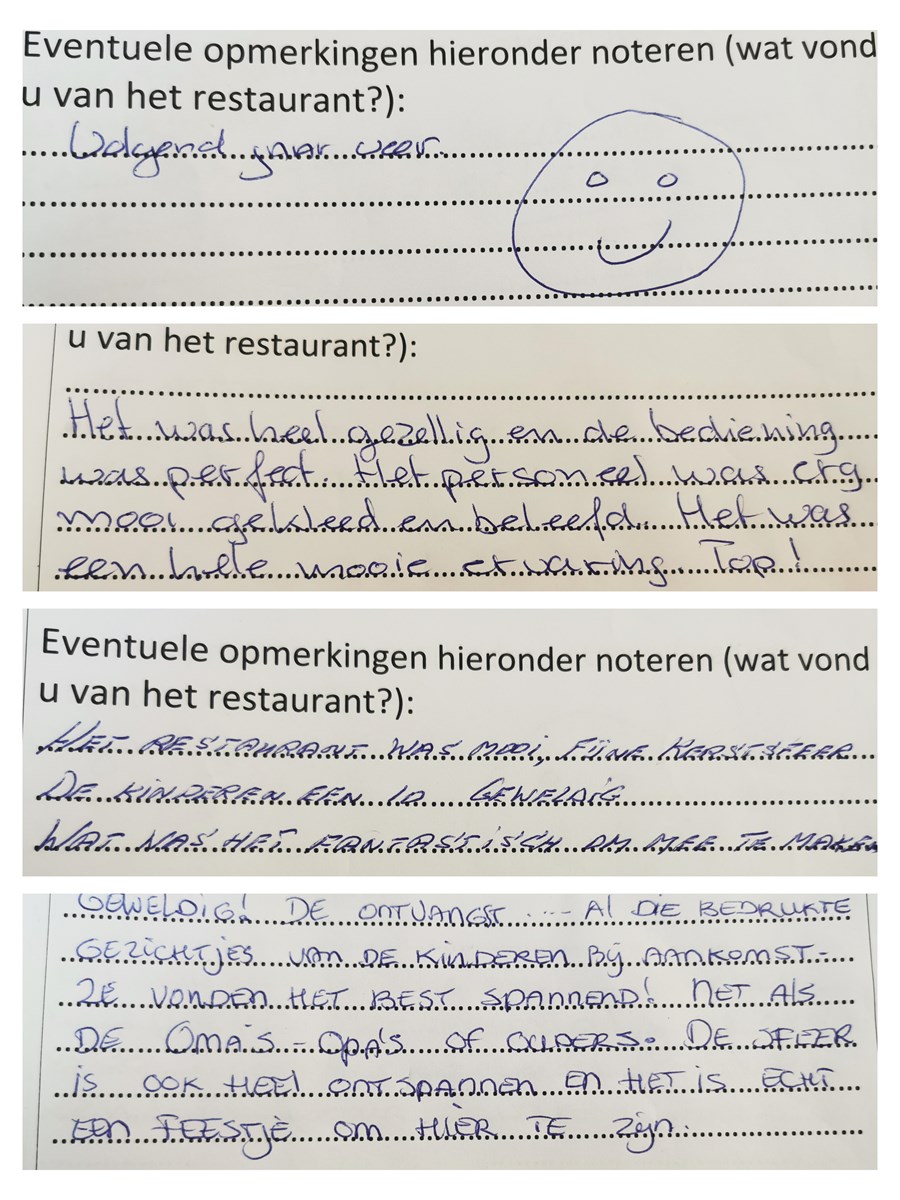 Eventuele opmerkingen hieronder noteren (wat vond
u van het restaurant?):
Volgend jaar weer
u van het restaurant?):
Het was heel gezellig en de bediening
was perfect. Het personeel was erg
mooi gekleed en beleefd. Het was
een hele mooie ervaring Top!
Eventuele opmerkingen hieronder noteren (wat vond
u van het restaurant?):
HET RESTAURANT WAS MOOI, FIJNE KERSTSFEER
DE KINDEREN EEN 10 GEWELDIG
WAT WAS HET FANTASTISCH OM MEE TE MAKEN
GEWELDIG! DE ONTVANGST ... Al DIE BEDRUKTE
GEZICHTJES VAN DE KINDEREN BIJ AANKOMST-
ZE VONDEN HET BEST SPANNEND! NET ALS
DE OMA'S - OPA'S OF OUDERS. DE SFEER
is OOK HEEL ONTSPANNEN EN HET is ECHT
EEN FEESTJE OM HIER TE ZIJN.